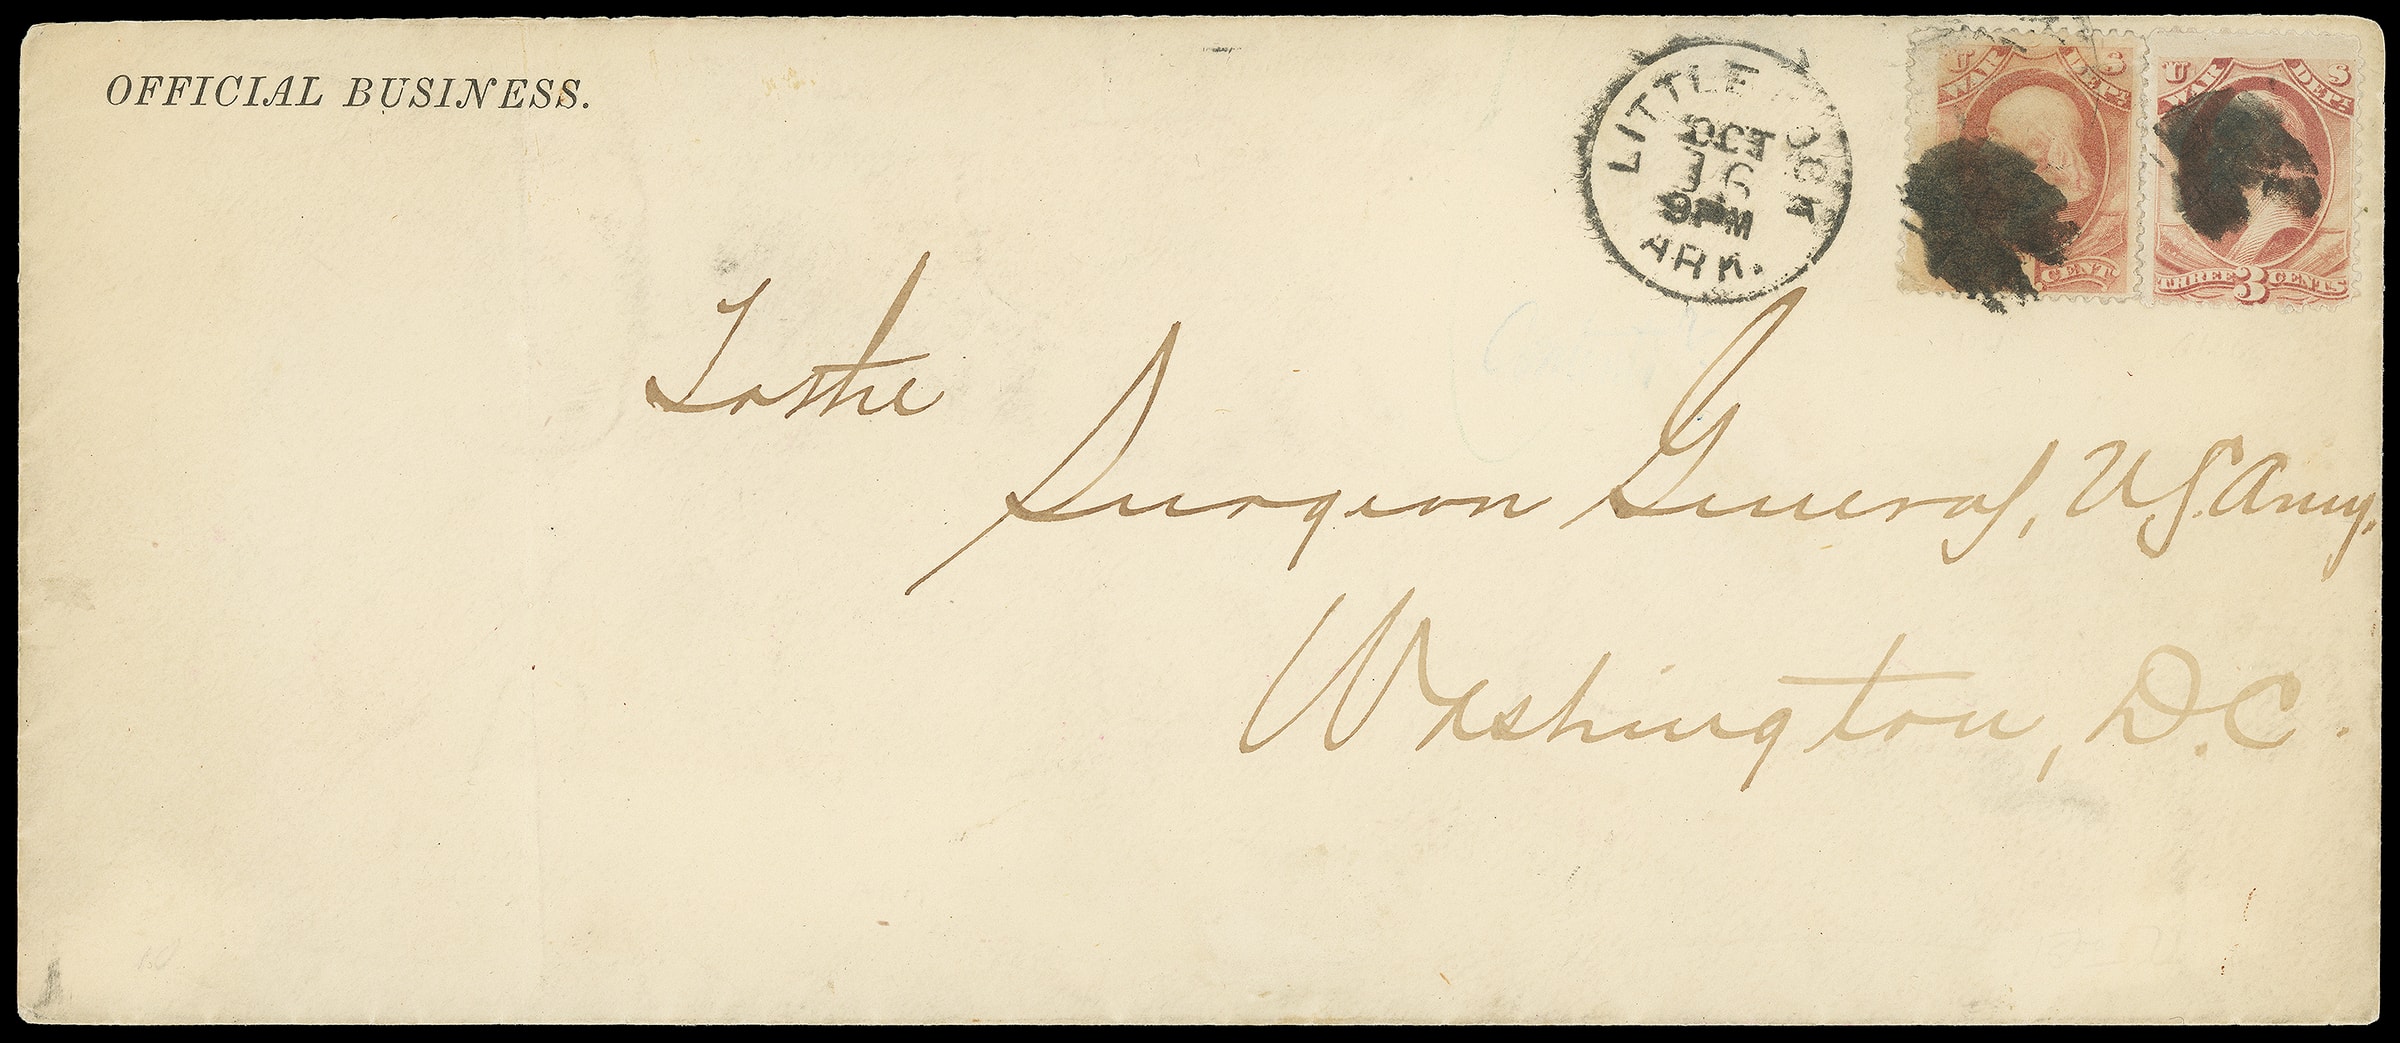 OFFICIAL BUSINESS.
LITTLE ROCK
OCT
9PM
ARK.
U S
WAR DEPT.
CENT
U S
WAR DEPT.
THREE 3 CENTS
To the
Surgeon General, U.S. Army.
Washington, D.C.